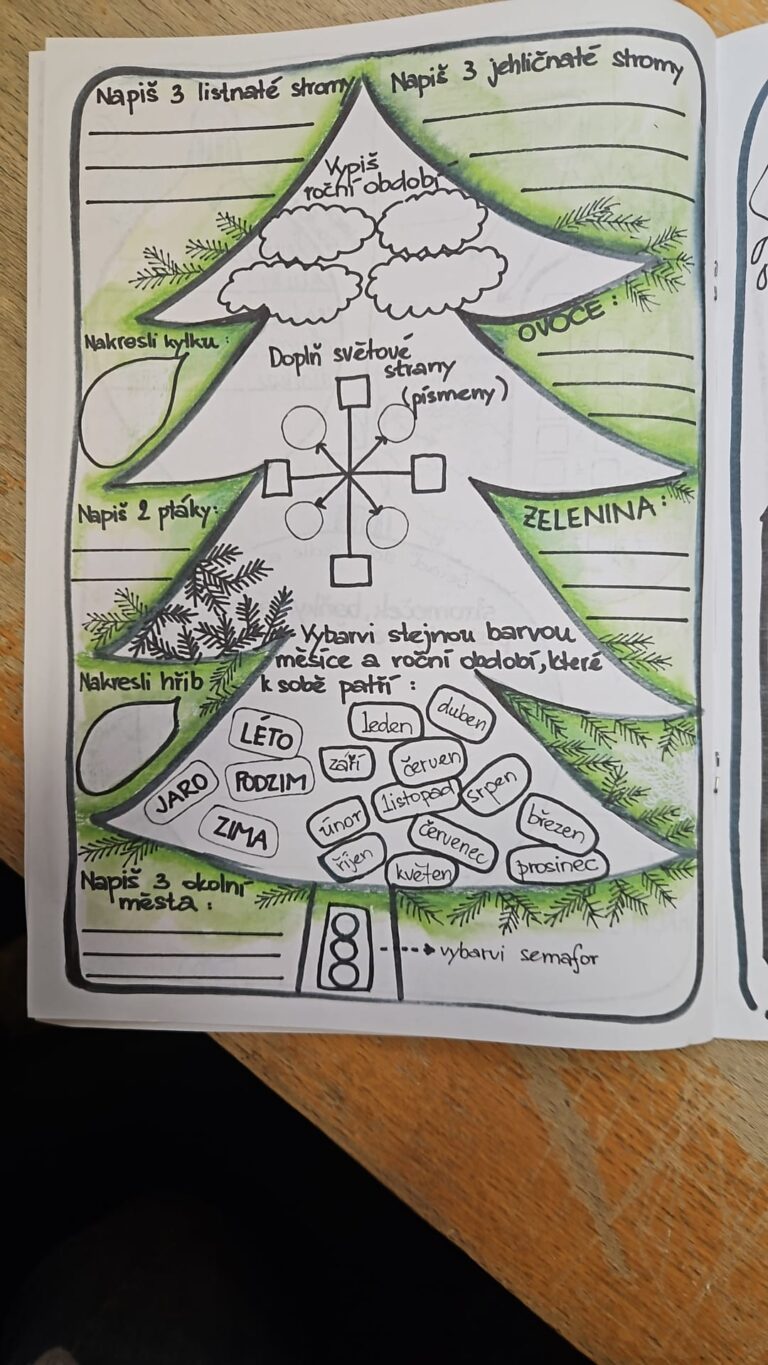 Napiš 3 listnaté stromy
Napiš 3 jehličnaté stromy
Vypiš
roční období
Nakresli kytku :
OVOCE :
Doplň světové
strany
(písmeny)
Napiš 2 ptáky:
ZELENINA:
Vybarvi stejnou barvou
měsíce a roční období, které
k sobě patří :
Nakresli hřib
leden
duben
LÉTO
září
červen
JARO
PODZIM
listopad
srpen
ZIMA
únor
červenec
březen
říjen
květen
prosinec
Napiš 3 okolní
města :
vybarvi semafor